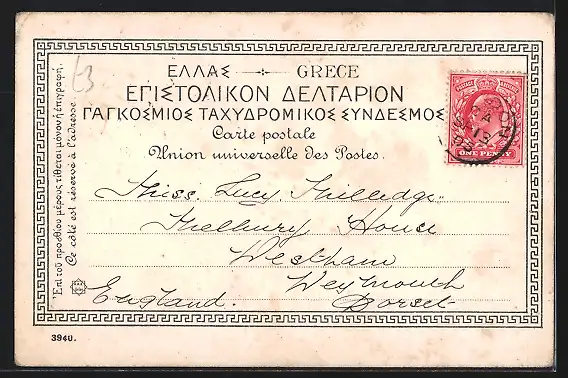 ЕЛЛАΣ GRECE
ΕΠΙΣΤΟΛΙΚΟΝ ΔΕΛΤΑΡΙΟΝ
ΠΑΓΚΟΣΜΙΟΣ ΤΑΧΥΔΡΟΜΙΚΟΣ ΣΥΝΔΕΣΜΟΣ
Carte postale
Union universelle des Postes.
Ἐπὶ τοῦ προσθίου μέρους τίθεται μόνον ἡ ἐπιγραφή.
Ce côté est réservé à l'adresse.
POSTAGE REVENUE
ONE PENNY
Miss. Lucy
House
Westham
Weymouth
Dorset
England.
3940.